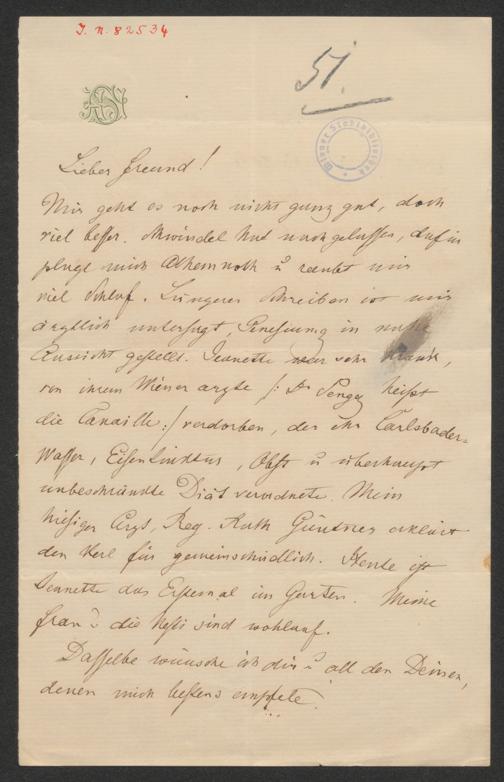 J. N. 82534
51.
Wiener Stadtbibliothek
Lieber Freund!
Mir geht es noch nicht ganz gut, doch
viel besser. Schwindel hat nachgelassen, dafür
plagt mich Athemnoth u raubt mir
viel Schlaf. Längeres Schreiben ist mir
ärztlich untersagt, Genesung in nahe
Aussicht gestellt. Jeanette war sehr krank,
von ihrem Wiener Arzte /: Dr heißt
die Canaille :/ verdorben, der ihr Carlsbader-
Wasser, Eisentinktur, Obst u überhaupt
unbeschränkte Diät verordnete. Mein
hiesiger Arzt, Reg. Rath erklärt
den Kerl für gemeinschädlich. Heute ist
Jeanette das Erstemal im Garten. Meine
Frau u die sind wohlauf.
Dasselbe wünsche ich dir u all den Deinen,
denen mich bestens empfele